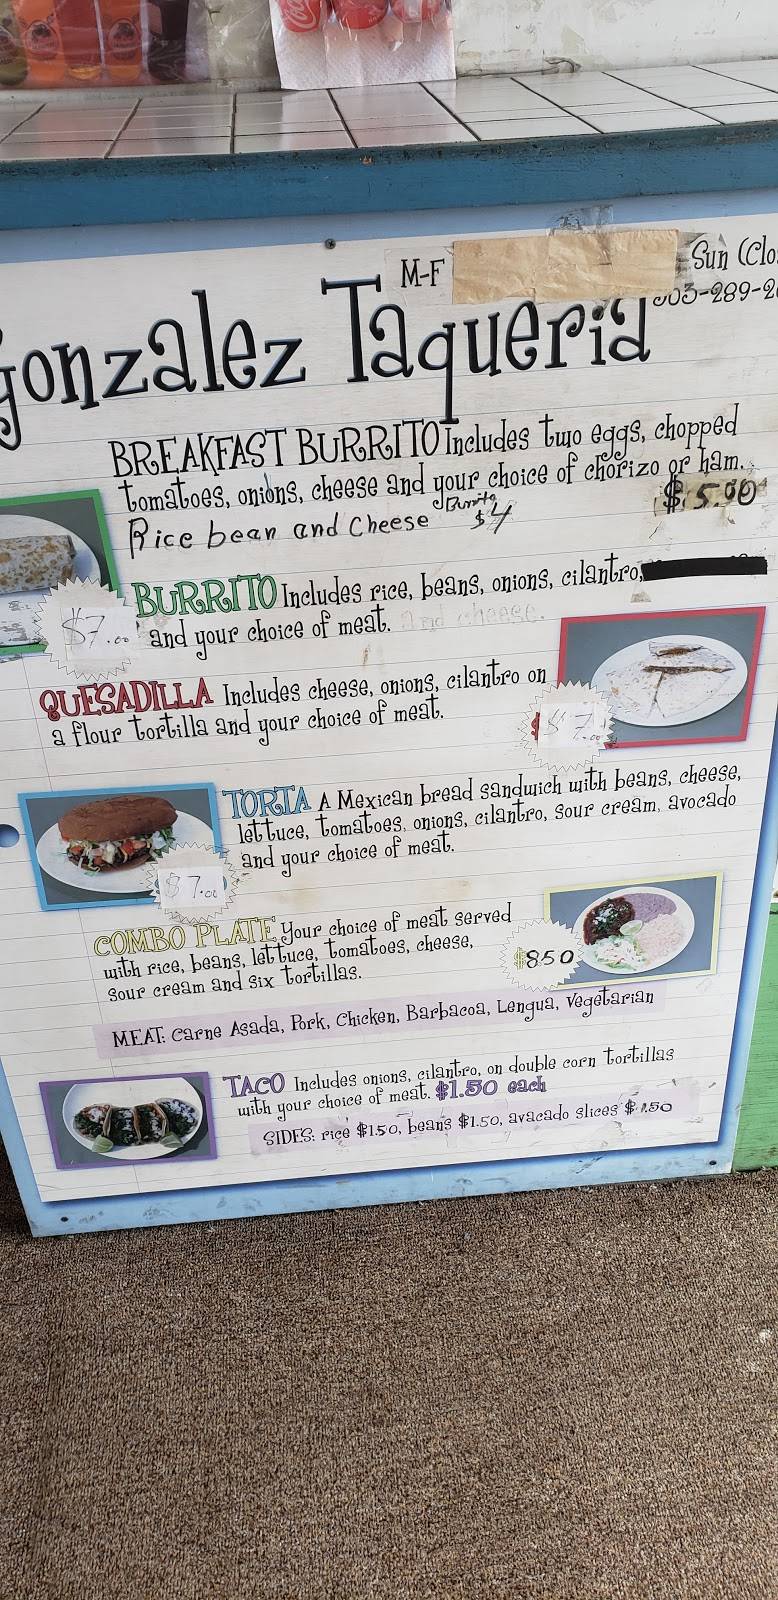 M-F
Sun (Clo
503-289-2
Gonzalez Taqueria
BREAKFAST BURRITO Includes two eggs, chopped
tomatoes, onions, cheese and your choice of chorizo or ham.
$5.00
Rice bean and Cheese Burrito $4
BURRITO Includes rice, beans, onions, cilantro,
and your choice of meat. and cheese.
$7.00
QUESADILLA Includes cheese, onions, cilantro on
a flour tortilla and your choice of meat.
$7.00
TORTA A Mexican bread sandwich with beans, cheese,
lettuce, tomatoes, onions, cilantro, sour cream, avocado
and your choice of meat.
$7.00
COMBO PLATE Your choice of meat served
with rice, beans, lettuce, tomatoes, cheese,
sour cream and six tortillas.
$850
MEAT: Carne Asada, Pork, Chicken, Barbacoa, Lengua, Vegetarian
TACO Includes onions, cilantro, on double corn tortillas
with your choice of meat. $1.50 each
SIDES: rice $1.50, beans $1.50, avacado slices $1.50